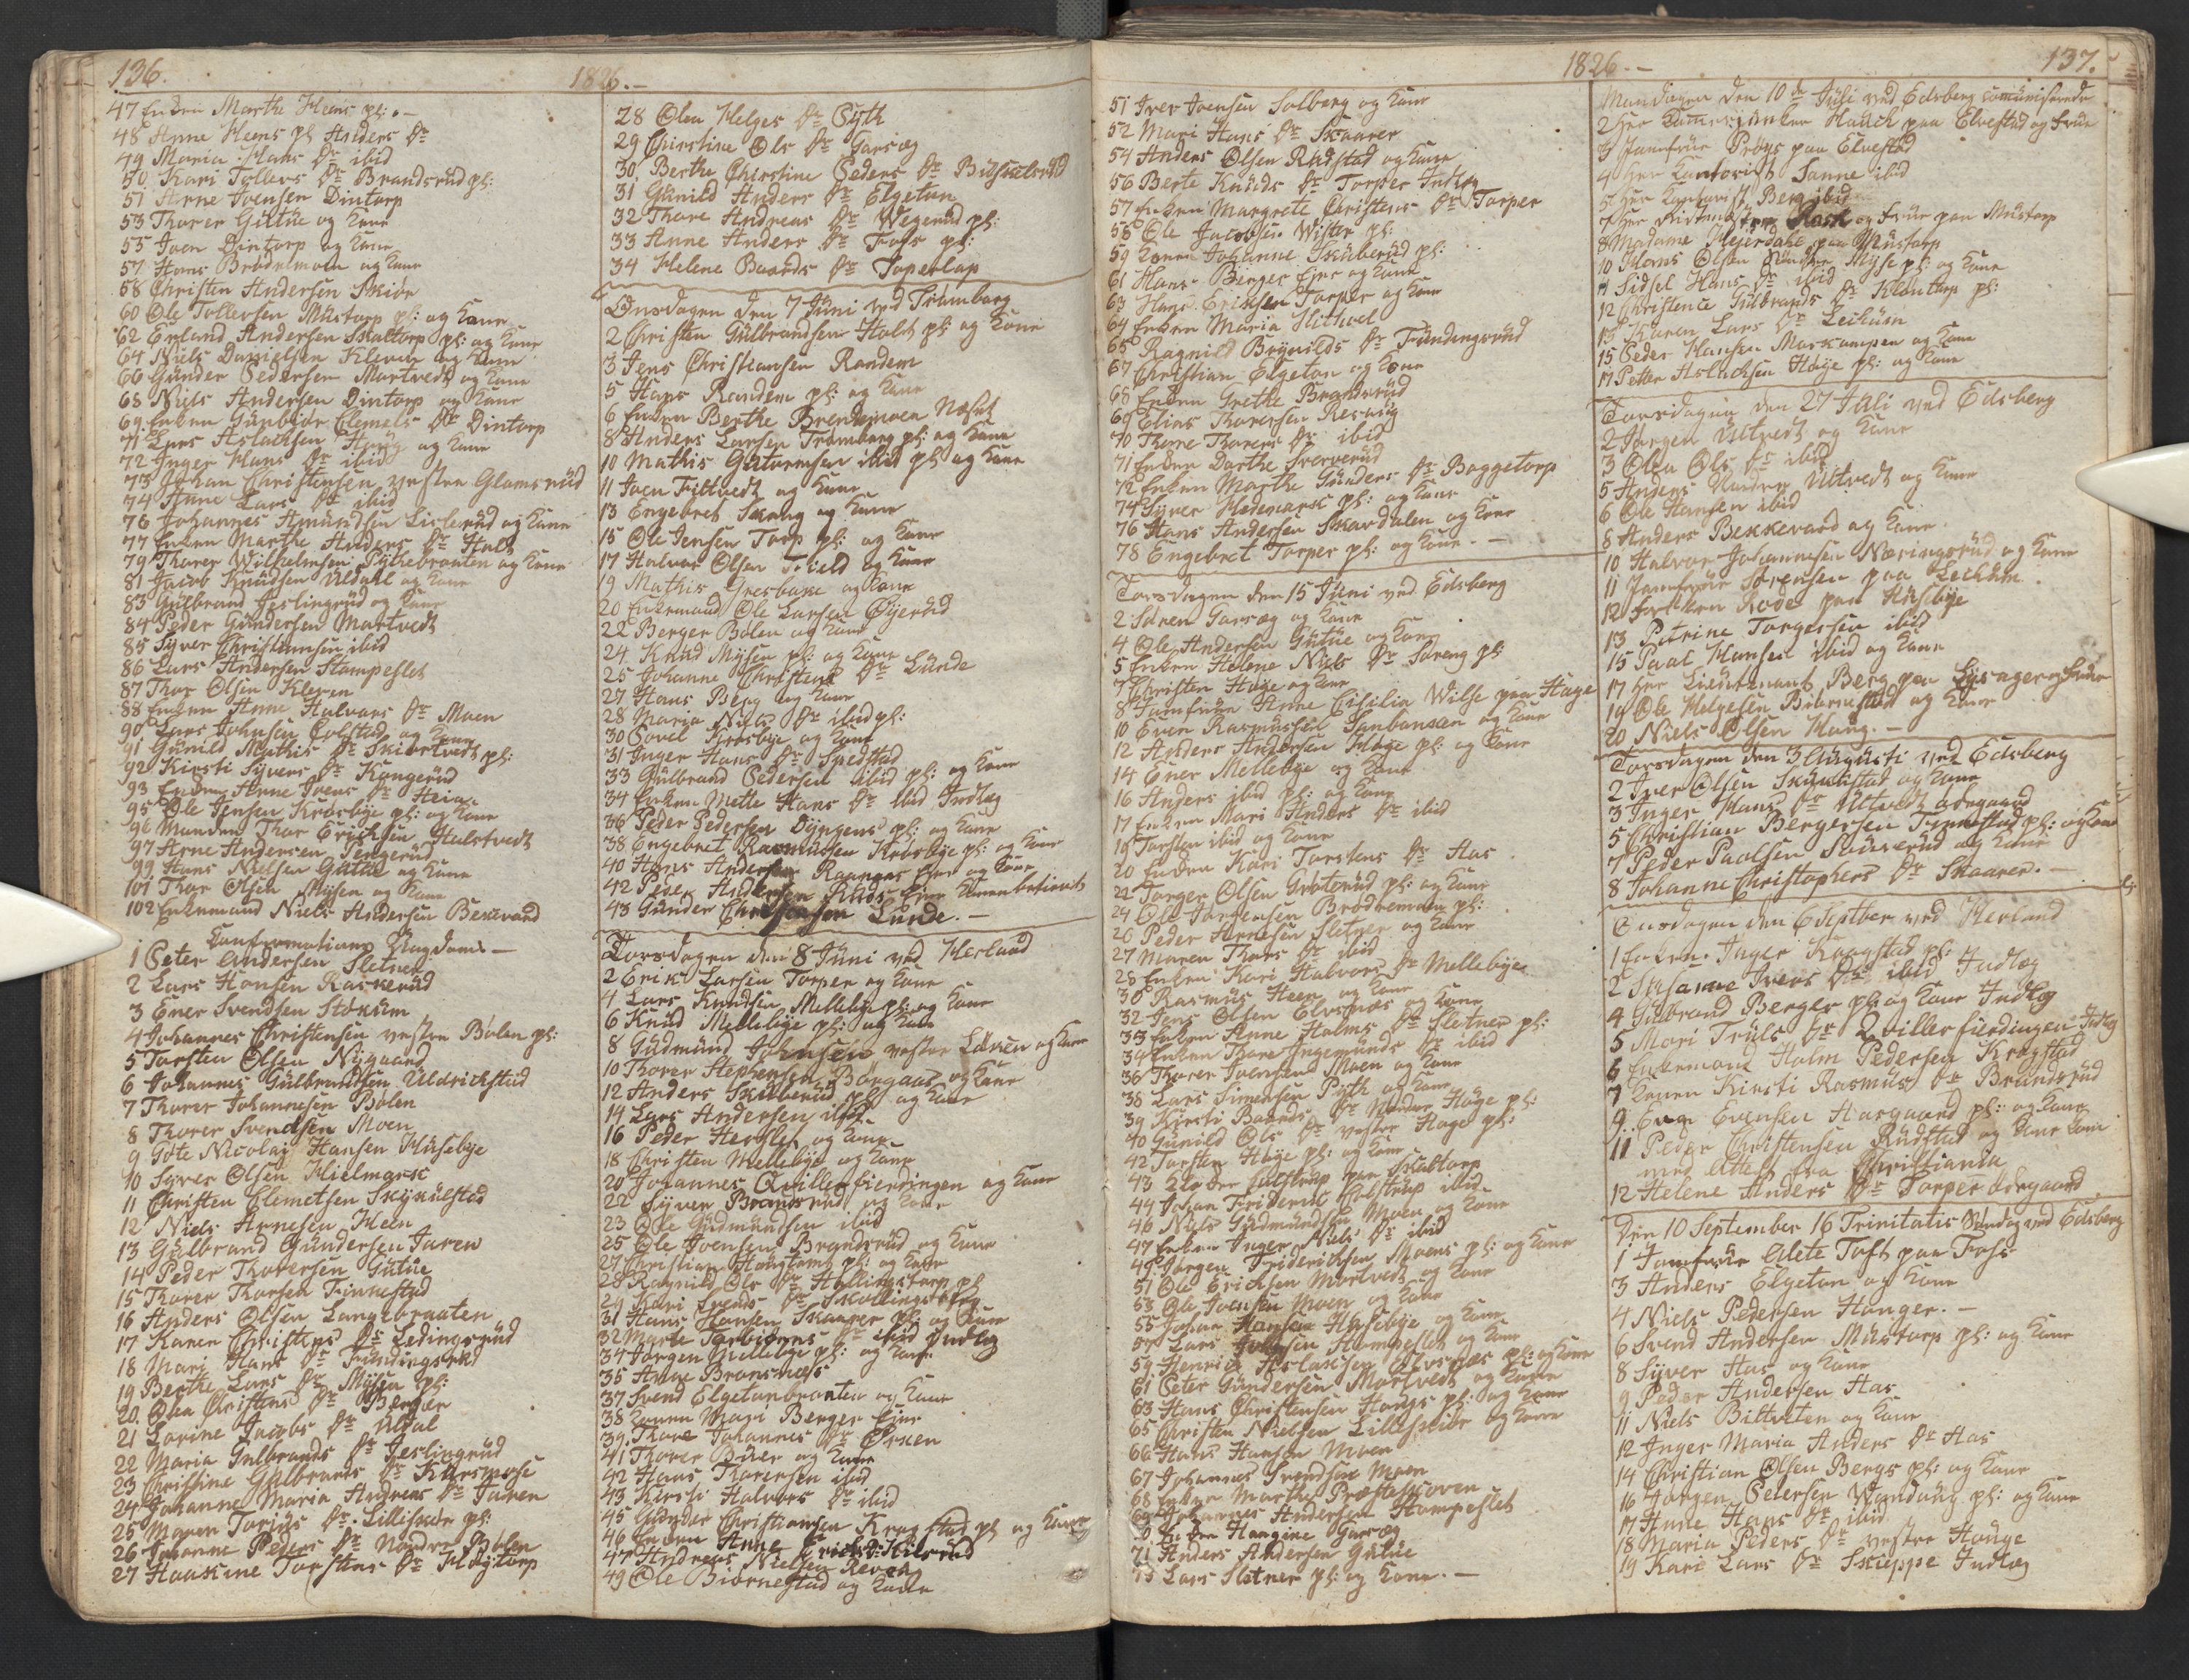 136.
1826.-
47 Enken Marthe Heens pl: -
48 Anne Heens pl Anders Dr
49 Maria Hans Dr ibid
50 Kari Tollevs Dr Brandsrüd pl:
51 Arne Ivensen Dintorp
53 Thorer Gütüe og Kone
55 Joen Dintorp og Kone
57 Hans Brødremoen og Kone
58 Christen Andersen Skiør
60 Ole Tollevsen Müstorp pl: og Kone
62 Erland Andersen Skaltorp pl: og Kone
64 Niels Danielsen Kleven og Kone
66 Günder Pedersen Martvedt og Kone
68 Niels Andersen Dintorp og Kone
69 Enken Günbiør Clemets Dr Dintorp
71 Lars Aslachsen Høÿe og Kone
72 Inger Hans Dr ibid
73 Johan Christensen vestre Glamsrüd
74 Anne Lars Dr ibid
76 Johannes Amündsen Lislerüd og Kone
77 Enken Marthe Anders Dr Holt
79 Thorer Wilhelmsen Pÿthebraaten og Kone
81 Jacob Knüdsen Üldahl og Kone
83 Gülbrand Jeslingrüd og Kone
84 Peder Gündersen Martvedt
85 Sÿver Christiansen ibid
86 Lars Andersen Stampeslet
87 Thor Olsen Kleven
88 Enken Anne Halvors Dr Moen
90 Lars Johnsen Colstad og Kone
91 Günild Mathis Dr Skiørtvedt pl:
92 Kirsti Sÿvers Dr Kangerüd
93 Enken Anne Ivers Dr Heia
95 Ole Jensen Krosbÿe pl: og Kone
96 Manden Thor Erichsen Hulstvedt
97 Arne Andersen Tengerüd
99 Hans Nielsen Gütüe og Kone
101 Thor Olsen Mÿsen og Kone
102 Enkemand Niels Andersen Bekkevard
Confirmations Ungdom -
1 Peter Andersen Sletner
2 Lars Hansen Raskerüd
3 Ener Svendsen Støküm
4 Johannes Christensen vestre Bølen pl:
5 Torsten Olsen Nÿgaard
6 Johannes Gülbrandsen Üldrichstad
7 Thorer Johannesen Bølen
8 Thorer Svendsen Moen
9 Gøte Nicolaÿ Hansen Hüsebÿe
10 Sÿver Olsen Hielmark
11 Christen Clemetsen Skÿkülstad
12 Niels Arnesen Heen
13 Gülbrand Gündersen Jaren
14 Peder Thorersen Gütüe
15 Thorer Thorsen Finnestad
16 Anders Olsen Langebraaten
17 Karen Christens Dr Ledingsrüd
18 Mari Hans Dr Fündingsrüd
19 Berthe Lars Dr Mÿsen pl:
20 Olea Christens Dr Berger
21 Lovine Jacobs Dr Üldal
22 Maria Gulbrands Dr Jeslingrüd
23 Christine Gülbrands Dr Kürsmose
24 Johanne Maria Andreas Dr Jaren
25 Maren Torjüs Dr Lilliskiør pl:
26 Johanne Peders Dr Nordre Bølen
27 Haaskine Torstens Dr Høÿtorp
28 Olea Helges Dr Pÿth
29 Christine Ols Dr Garsæg
30 Berthe Christine Peders Dr
31 Günild Anders Dr Elgetun
32 Thore Andreas Dr Wegerüd pl:
33 Anne Anders Dr Foss pl:
34 Helene Baards Dr Toperlap
Onsdagen den 7 Jüni ved Trømborg
2 Christen Gülbrandsen Holt pl: og Kone
3 Jens Christiansen Randem
5 Hans Randem pl: og Kone
6 Enken Berthe Brendemoen Næset
8 Anders Larsen Trømborg pl: og Kone
10 Mathis Guttormsen ibid pl: og Kone
11 Joen Fittvedt og Kone
13 Engebret Skaug og Kone
15 Ole Jensen Torp pl: og Kone
17 Halvor Olsen Field og Kone
19 Mathis Gresbaxe og Kone
20 Enkemand Ole Larsen Øÿerüd
22 Berger Bølen og Kone
24 Knüd Mÿsen pl: og Kone
25 Johanne Christens Dr Lünde
27 Hans Berg og Kone
28 Maria Niels Dr ibid pl:
30 Povel Krosbÿe og Kone
31 Inger Hans Dr Spedstad
33 Gülbrand Pedersen ibid pl: og Kone
34 Enken Mette Hans Dr ibid Indlæg
36 Peder Pedersen Dÿngens pl: og Kone
38 Engebret Rasmüssen Krosbÿe pl: og Kone
40 Hans Andersen Raanaas Eier og Kone
42 Peder Andersen Rüds Eier
43 Günder Christensen Lünde. -
Torsdagen den 8 Jüni ved Herland
2 Erik Larsen Torper og Kone
4 Lars Knüdsen Mellebÿe pl: og Kone
6 Knüd Mellebÿe pl: og Kone
8 Güdmünd Johnsen vestre Løken og Kone
10 Thorer Stephensen Børgaas og Kone
12 Anders Sküberüd pl: og Kone
14 Lars Andersen ibid
16 Peder Hersleb og Kone
18 Christen Mellebÿe og Kone
20 Johannes Qvillerfierdingen og Kone
22 Sÿver Brandsrüd og Kone
23 Ole Güdmündsen ibid
25 Ole Ivensen Brandsrüd og Kone
27 Christian Haugtomt pl: og Kone
28 Ragnild Ols Dr Hallingstorp pl:
29 Kari Svends Dr Skallingsberg
31 Hans Hansen Skaarer pl: og Kone
32 Marte Torbiørns Dr ibid Indlæg
34 Jørgen Mellebÿe pl: og Kone
35 Anne Bransnæs
37 Svend Elgetunbraaten og Kone
38 Konen Mari Berger Eier
39 Thore Johannes Dr Ørken
41 Thorer Büer og Kone
42 Hans Thorersen ibid
43 Kirsti Halvors Dr ibid
45 Günder Christiansen Kragstad pl: og Kone
46 Enken Anne Erichs Dr Hilsrüd
47 Andreas Nielsen Reven
49 Ole Biørnestad og Kone
1826.-
137.
51 Iver Ivensen Solberg og Kone
52 Mari Hans Dr Skaarer
54 Anders Olsen Rüdstad og Kone
56 Berte Knüds Dr Torper Indlæg
57 Enken Margrete Christens Dr Torper
58 Ole Jacobsen Wister pl:
59 Konen Johanne Sküberüd pl:
61 Hans Berger Eier og Kone
63 Hans Eriksen Torper og Kone
64 Enken Maria Slitvet
65 Ragnild Brÿnilds Dr Fündingsrüd
67 Christian Elgetun og Kone
68 Enken Grethe Brandsrüd
69 Elias Thorersen Resaug
70 Thore Thorers Dr ibid
71 Enken Dorthe Sververüd
72 Enken Marthe Günders Dr Baggetorp
74 Sÿver Hedemark pl: og Kone
76 Hans Andersen Skavdalen og Kone
78 Engebret Torper pl: og Kone. -
Torsdagen den 15 Jüni ved Edsberg
2 Søren Garsæg og Kone
4 Ole Andersen Gütüe og Kone
5 Enken Helene Niels Dr Søreng pl:
7 Christen Høÿe og Kone
8 Jomfrüe Anne Cicilia Wilse paa Hage
10 Even Rasmüssen Sanbønsæn og Kone
12 Anders Andersen Hage pl: og Kone
14 Ener Mellebÿe og Kone
16 Anders ibid pl: og Kone
17 Enken Mari Anders Dr ibid
19 Torsten ibid og Kone
20 Enken Kari Torstens Dr Aas
22 Torger Olsen Grøterüd pl: og Kone
24 Ole Jørgensen Brødremoen pl:
26 Peder Arnesen Sletner og Kone
27 Maren Thors Dr ibid
28 Enken Kari Halvors Dr Mellebÿe
30 Rasmüs Heen og Kone
32 Jens Olsen Elvsnæs og Kone
33 Enken Anne Halms Dr Sletner pl:
34 Enken Thore Ingemünds Dr ibid
36 Thorer Ivensen Moen og Kone
38 Lars Simensen Pÿth og Kone
39 Kirsti Baards Dr Nordre Høÿe pl:
40 Günild Ols Dr vestre Hage pl:
42 Torsten Høÿe pl: og Kone
43 Klokker Folstrup paa Skaltorp
44 Johan Friderik Folstrüp ibid
46 Niels Güdmündsen Moen og Kone
47 Enken Inger Niels Dr ibid
49 Jørgen Friderichsen Moens pl: og Kone
51 Ole Erichsen Martvedt og Kone
53 Ole Ivensen Moen og Kone
55 Johan Hansen Hüsebÿe og Kone
57 Lars Johnsen Stampeslet og Kone
59 Henrich Aslaksen Elvsnæs pl: og Kone
61 Peter Gündersen Martvedt og Kone
63 Hans Christensen Høÿe pl: og Kone
65 Christen Nielsen Lilleskiør og Kone
66 Hans Hansen Moen
67 Johannes Svendsen Moen
68 Enken Marthe Præsteskoven
69 Johannes Andersen Stampeslet
70 Enken Haagine Garsæg
71 Anders Andersen Gütüe
73 Lars Sletner pl: og Kone. -
Mandagen den 10de Jüli ved Edsberg comüniserede
2 Herr Kammerjunker Hauch paa Elvestad og Frue
3 Jomfrüe Prøÿs paa Elvestad
4 Herr Kantorist Sanne ibid
5 Herr Kantorist Berg ibid
7 Herr Ritmester Rask og Früe paa Müstorp
8 Madame Heierdahl paa Müstorp
10 Hans Olsen Søndre Mÿse pl: og Kone
11 Sidsel Hans Dr ibid
12 Christence Gülbrands Dr Klontorp pl:
13 Karen Lars Dr Leküm
15 Peder Hansen Morkampen og Kone
17 Petter Aslachsen Høÿe pl: og Kone
Torsdagen den 27 Jüli ved Edsberg
2 Jørgen Ültvedt og Kone
3 Olea Ols Dr ibid
5 Anders Nordre Ültvedt og Kone
6 Ole Hansen ibid
8 Anders Bekkevard og Kone
10 Halvor Johannesen Næringsrüd og Kone
11 Jomfrüe Sørensen paa Leküm
12 Frøken Rode paa Hüsebÿe
13 Petrine Torgersen ibid
15 Paal Hansen ibid og Kone
17 Herr Lieütenant Berg paa Lÿsager og Früe
19 Ole Helgesen Biørnestad og Kone
20 Niels Olsen Haug. -
Torsdagen den 3 Aügüsti ved Edsberg
2 Iver Olsen Skÿkülstad og Kone
3 Inger Hans Dr Ültvedt ødegaard
5 Christian Bergersen Finnestad pl: og Kone
7 Peder Paalsen Sürerüd og Kone
8 Johanne Christophers Dr Skaarer. -
Onsdagen den 6 Septber ved Herland
1 Enken Inger Kragstad pl:
2 Susanne Ivers Dr ibid Indlæg
4 Gülbrand Berger pl: og Kone Indlæg
5 Mari Trüls Dr Qvillerfierdingen Indlæg
6 Enkemand Halm Pedersen Kragstad
7 Konen Kirsti Rasmüs Dr Brandsrüd
9 Even Evensen Hargaard pl: og Kone
11 Peder Christensen Rüdstad og Kone kom
med Attest fra Christiania
12 Helene Anders Dr Torper ødegaard
Den 10 September 16 Trinitatis Søndag ved Edsberg
1 Jomfrüe Alete Toft paa Foss
3 Anders Elgetun og Kone
4 Niels Pedersen Hanger. -
6 Svend Andersen Müstorp pl: og Kone
8 Sÿver Aas og Kone
9 Peder Andersen Aas
11 Niels Bittveten og Kone
12 Inger Maria Anders Dr Aas
14 Christian Olsen Bergs pl: og Kone
16 Jørgen Petersen Wandüng pl: og Kone
17 Anne Hans Dr ibid
18 Maria Peders Dr vestre Hauge
19 Kari Lars Dr Skieppe Indlæg